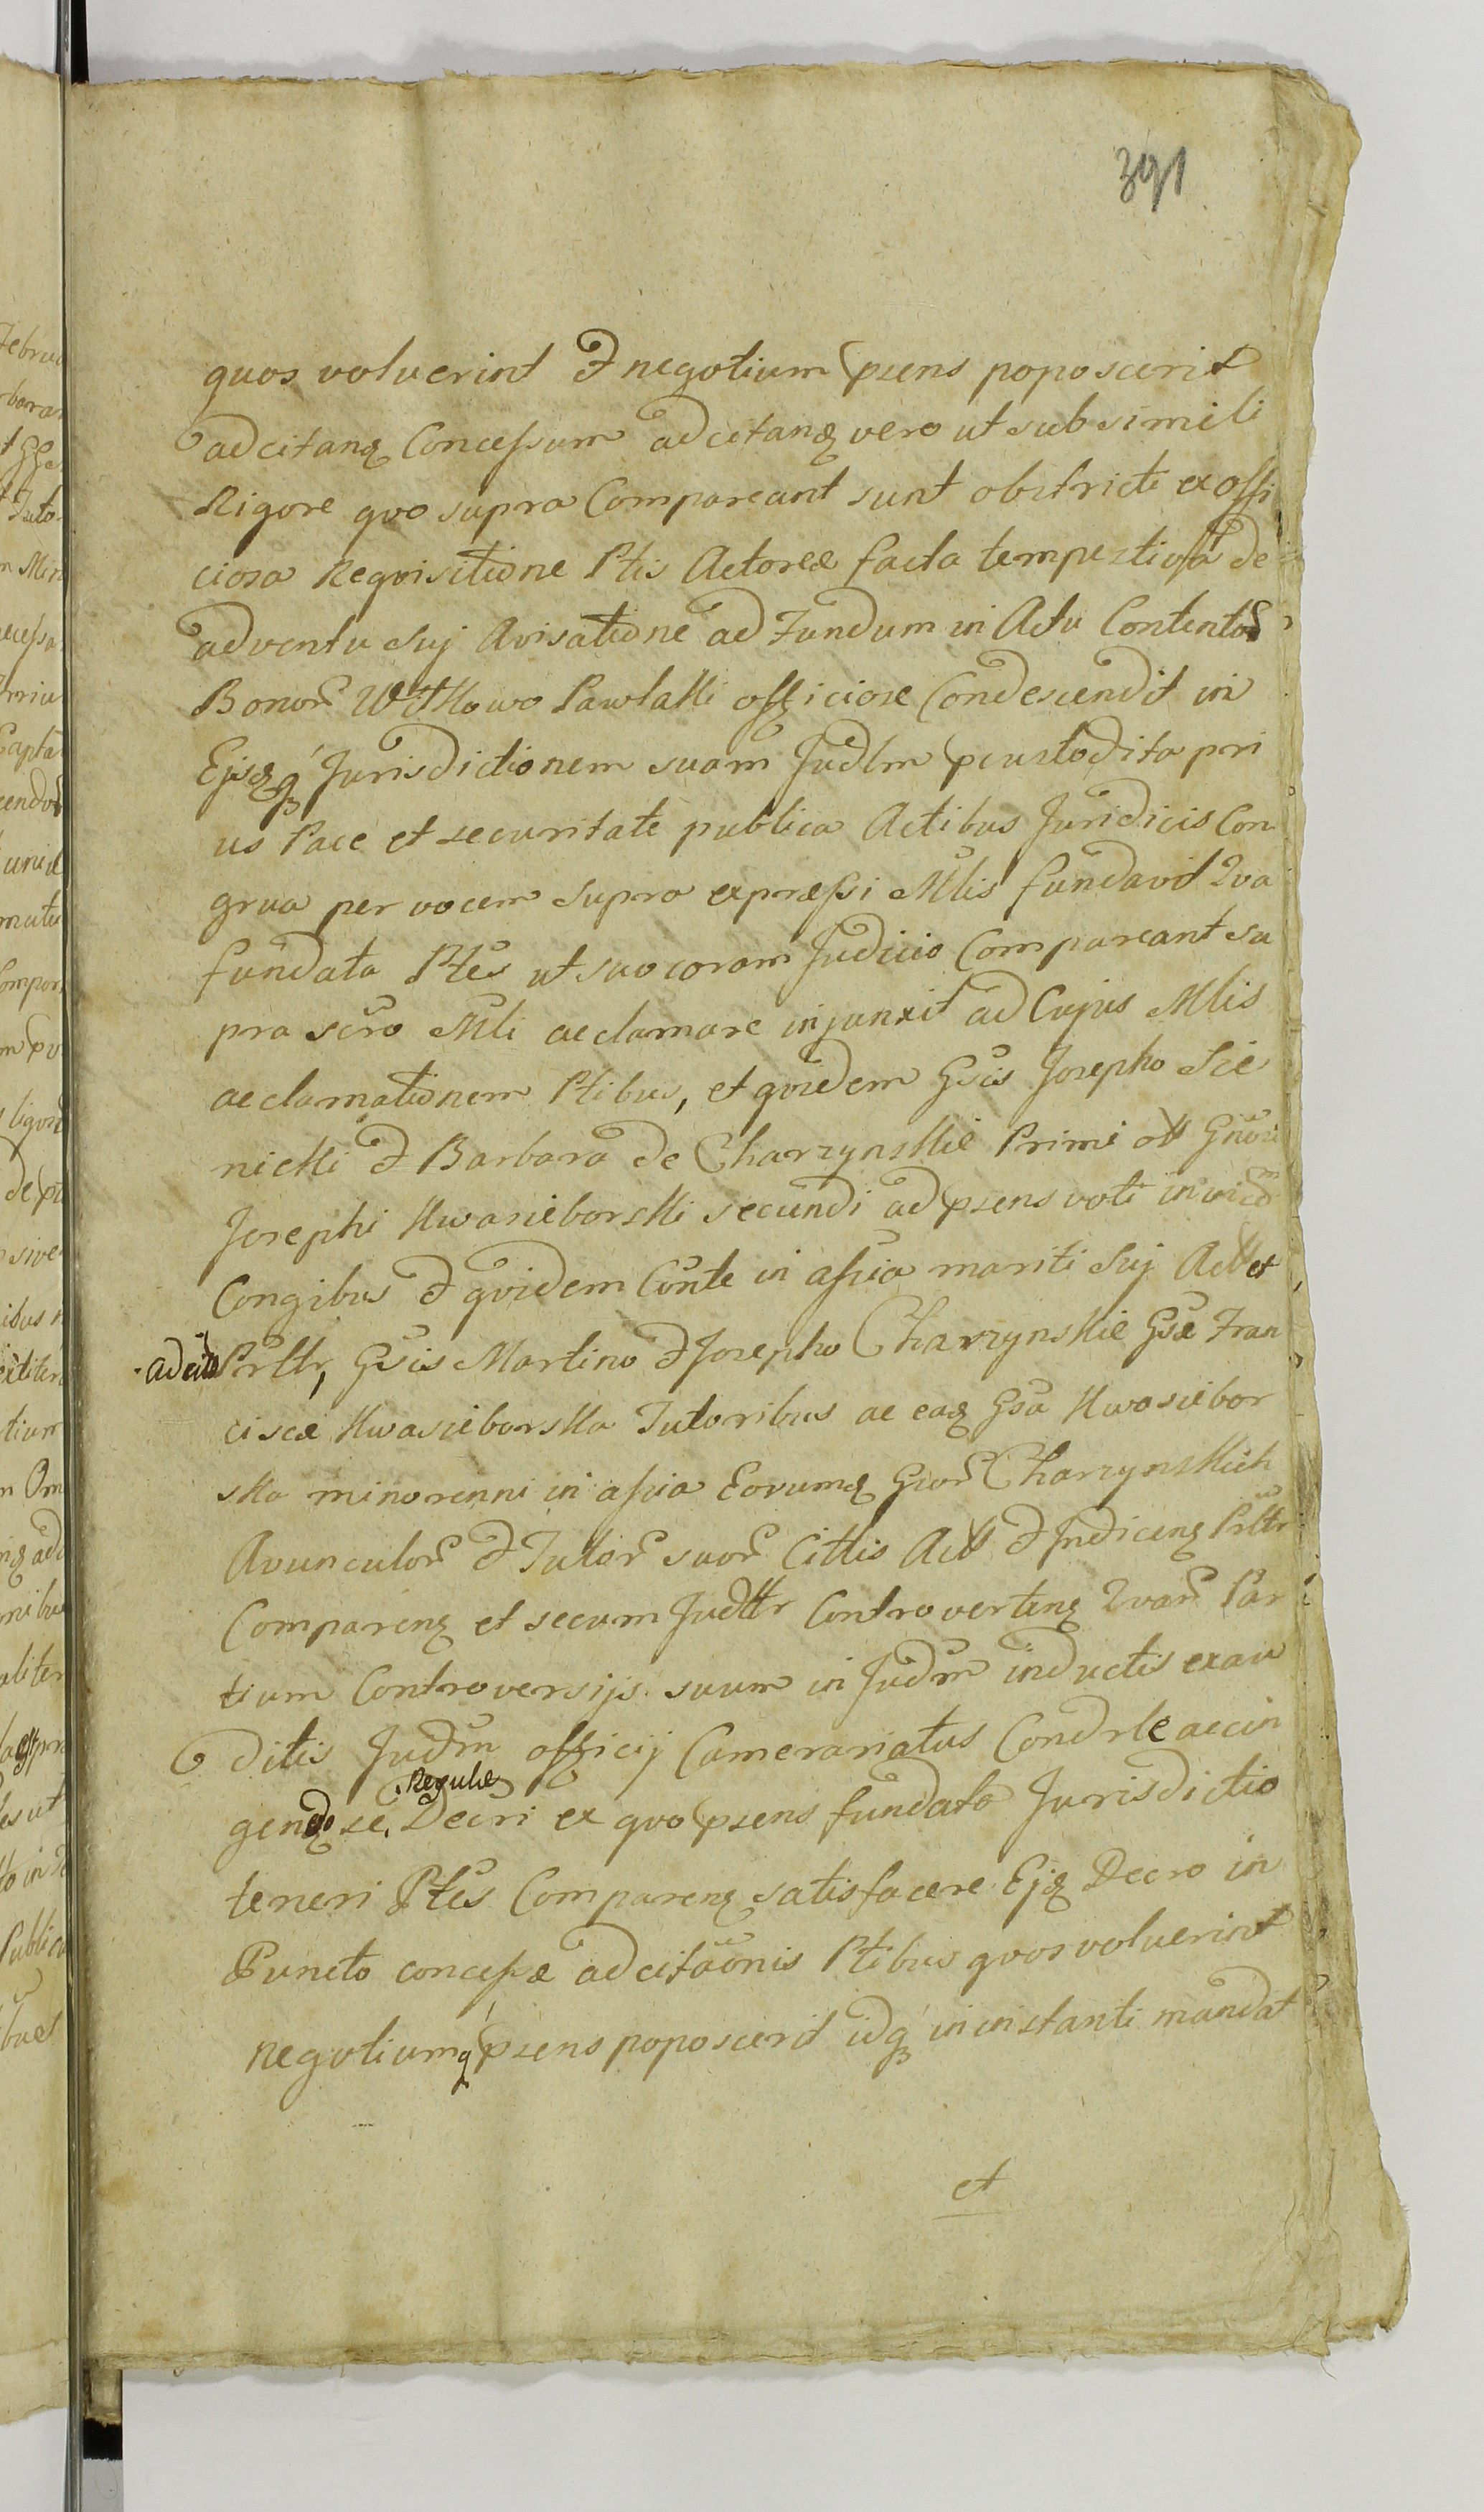 391
quos voluerint & negotium psens poposcerit
adcitanq Concessum adcitanq vero ut sub simili
Rigore quo supra Compareant sunt obstricti ex offi
ciosa Requisitione Ptis Actoreæ facta tempestiva de
adventu Suj Avisatione ad Fundum in Actu Contentor
Bonor Witkowo Pawlaki officiose Condescendit in
Ejsqq Jurisdictionem suam Judlm pcustodita pri
us Pace et securitate publica Actibus Juridicis Con
grua per vocem Supra expressi Mlis fundavit Qva
fundata Ptes ut suo coram Judicio Compareant su
pra scro Mli acclamare injunxit ad Cujus Mlis
acclamationem Ptibus, et quidem Gsis Josepho Sie
nicki & Barbara de Charzynskie Primi olł Gnosi
Josephi Kwasieborski secundi ad psens voti invicem
Congibus & quidem Conte in assia mariti Suj Actt et
adcito Prltr, Gsis Martino & Josepho Charzynskie Gsæ Fran
ciscæ Kwasieborska Tutoribus ac eaq Gsa Kwasiebor
ska minorenni in assia Eorumq Gsor Charzynskich
Avunculor & Tutor suor Cittis Actt & Indicenq Prltr
Comparenq et secum Judltr Controvertenq Qvar Par
tium Controversijs suum in Judm inductis exau
ditis Judm officij Camerariatus Condrle accin
gendo se Regulæ Decri ex quo psens fundata Jurisdictio
teneri Ptes Comparenq satisfacere Ejq Decro in
Puncto concessæ adcitaonis Ptibus quos voluerint
negotiumq psens poposcerit idq in instanti mandat
et